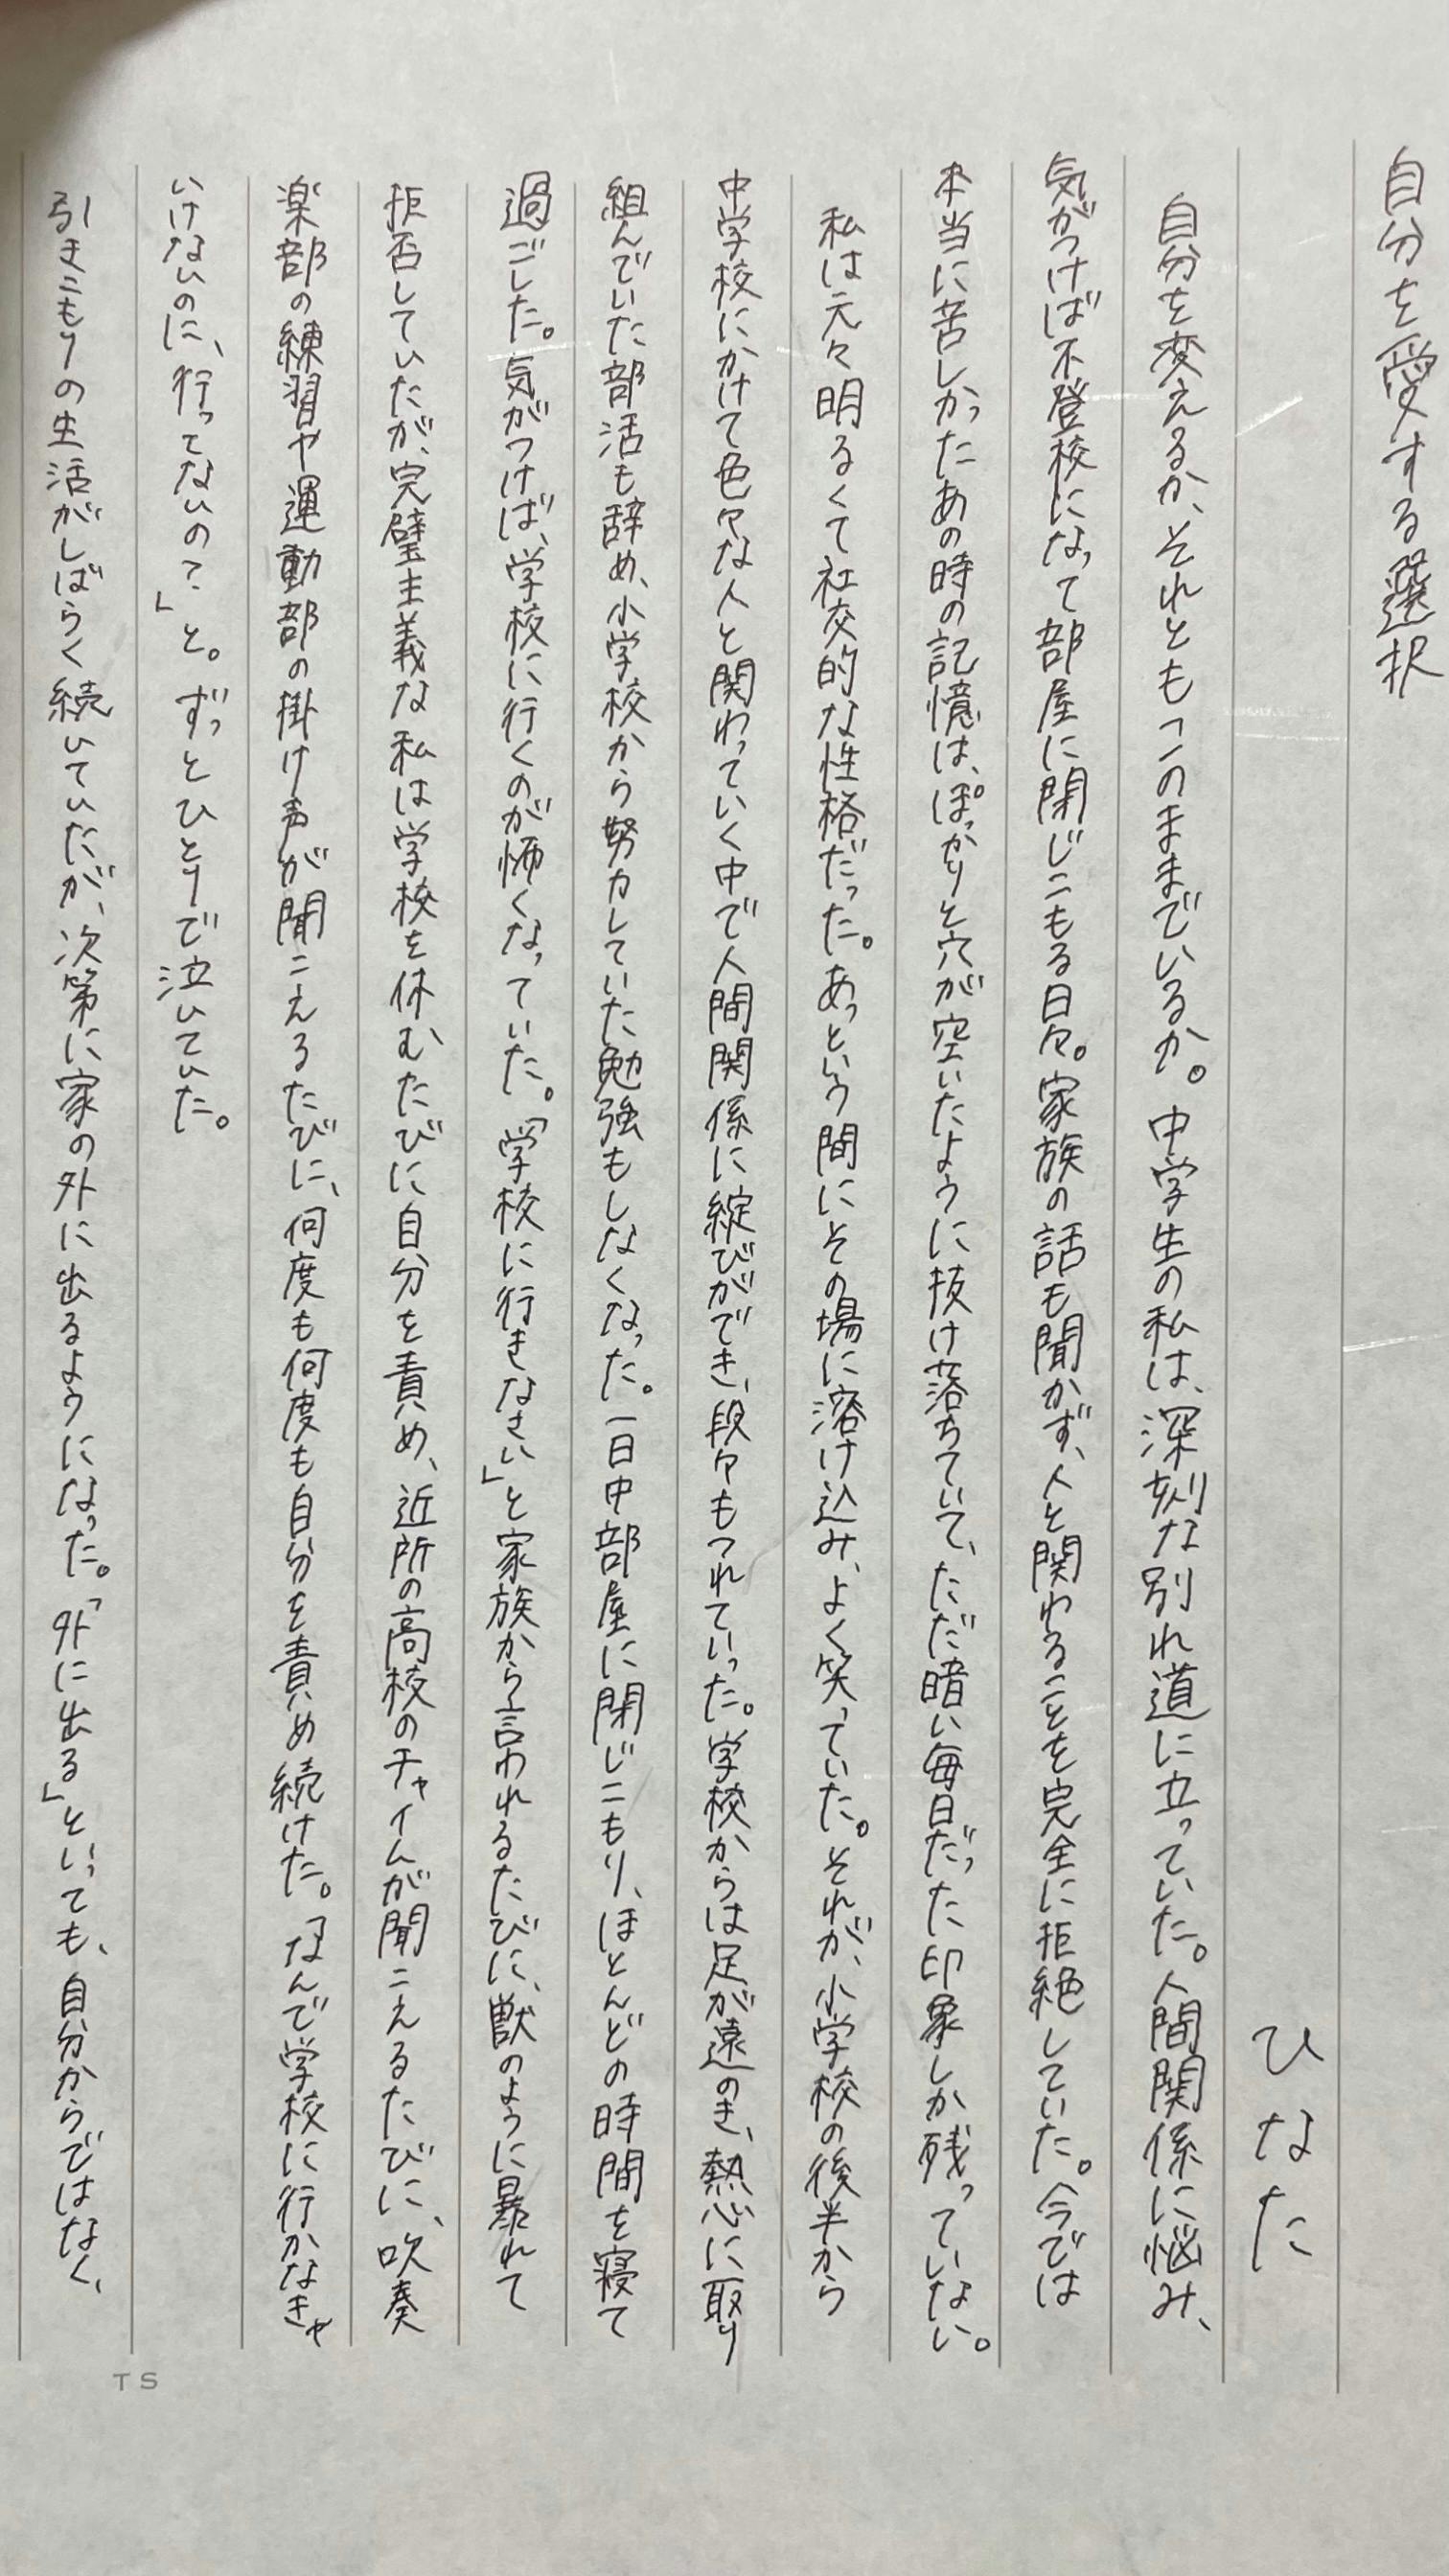 自分を愛する選択
ひなた
自分を変えるか、それともこのままでいるか。中学生の私は、深刻な別れ道に立っていた。人間関係に悩み、
気がつけば不登校になって部屋に閉じこもる日々。家族の話も聞かず、人と関わることを完全に拒絶していた。今では
本当に苦しかったあの時の記憶は、ぽっかりと穴が空いたように抜け落ちていて、ただ暗い毎日だった印象しか残っていない。
私は元々明るくて社交的な性格だった。あっという間にその場に溶け込み、よく笑っていた。それが、小学校の後半から
中学校にかけて色々な人と関わっていく中で人間関係に綻びができ、段々もつれていった。学校からは足が遠のき、熱心に取り
組んでいた部活も辞め、小学校から努力していた勉強もしなくなった。一日中部屋に閉じこもり、ほとんどの時間を寝て
過ごした。気がつけば、学校に行くのが怖くなっていた。「学校に行きなさい」と家族から言われるたびに、獣のように暴れて
拒否していたが、完璧主義な私は学校を休むたびに自分を責め、近所の高校のチャイムが聞こえるたびに、吹奏
楽部の練習や運動部の掛け声が聞こえるたびに、何度も何度も自分を責め続けた。「なんで学校に行かなきゃ
いけないのに、行ってないの？」と。ずっとひとりで泣いていた。
引きこもりの生活がしばらく続いていたが、次第に家の外に出るようになった。「外に出る」といっても、自分からではなく、
TS